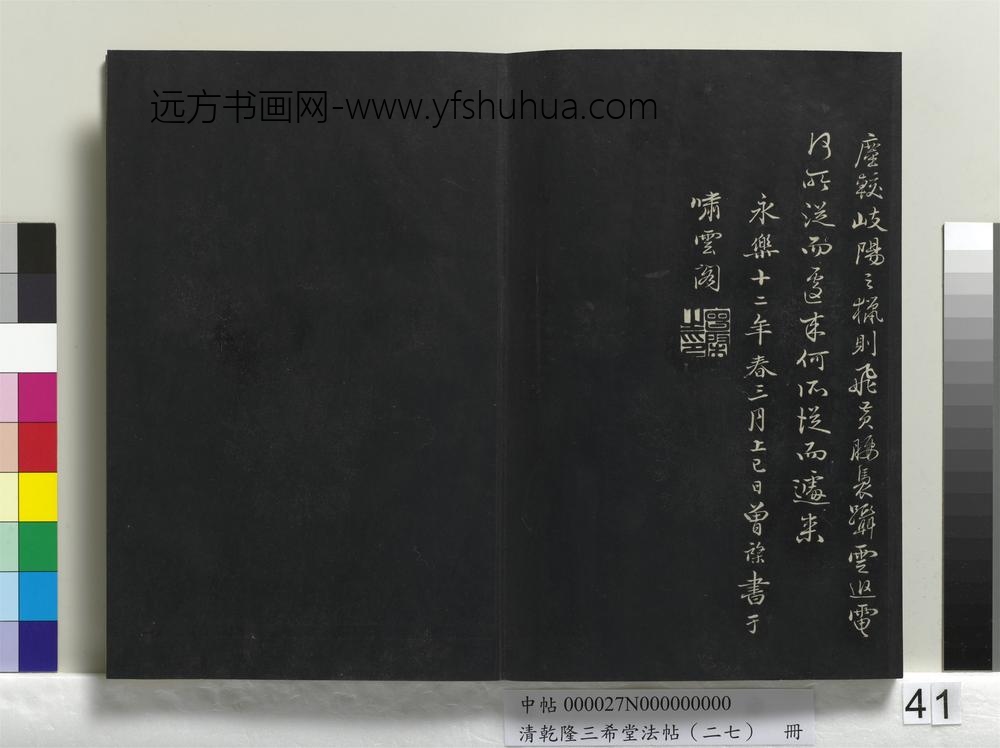 塵較岐陽之獵則飛黃騕褭躡雲追電
何所從而遽來何所從而遽來
永樂十二年春三月上巳日曾棨書于
嘯雲閣
远方书画网-www.yfshuhua.com
中帖 000027N000000000
清乾隆三希堂法帖（二七） 冊
41